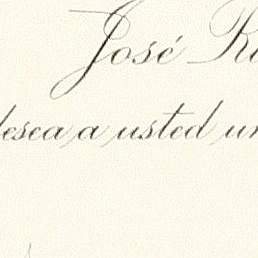 José R
desea a usted un